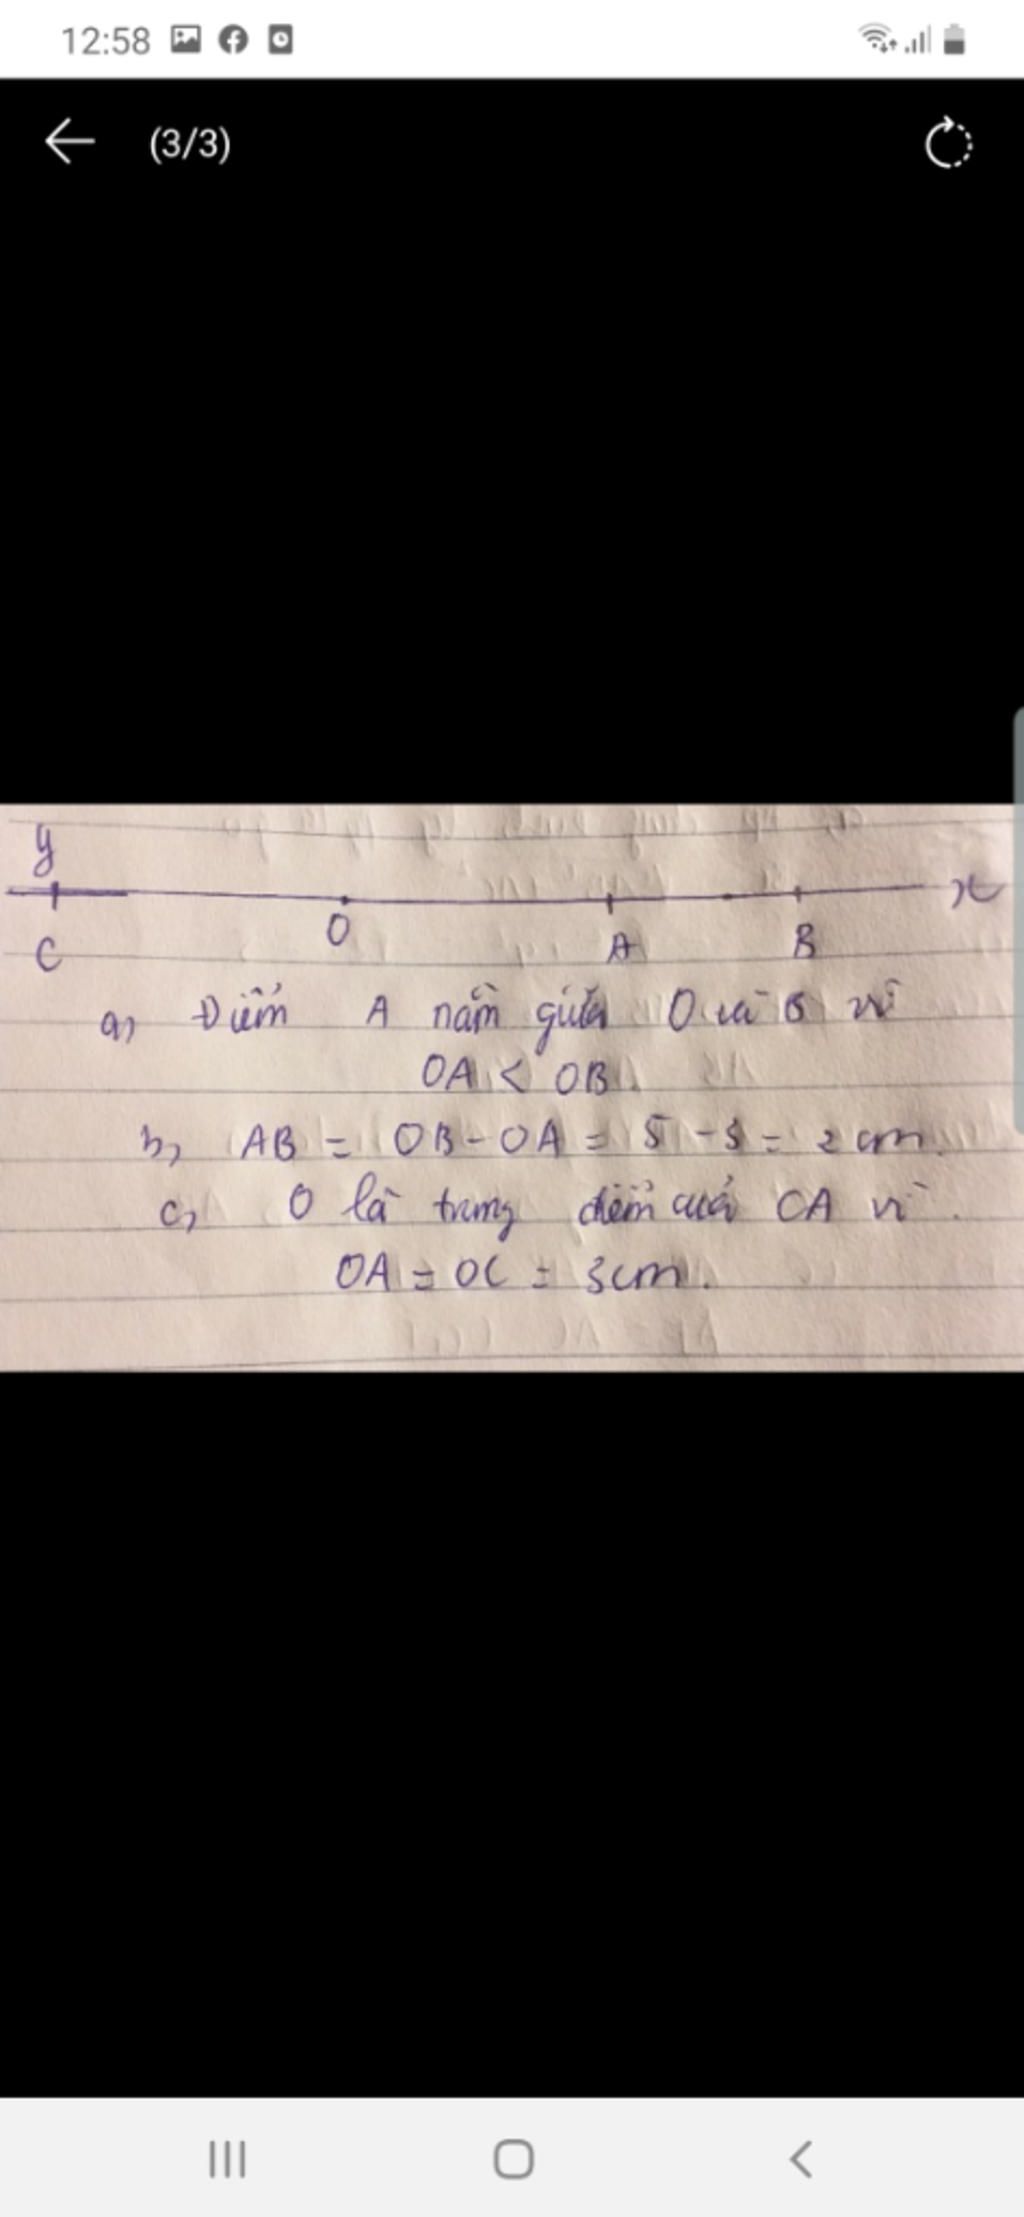 12:58
(3/3)
y
x
C O A B
a) Điểm A nằm giữa O và B vì
OA < OB.
b, AB = OB - OA = 5 - 3 = 2 cm.
c, O là trung điểm của CA vì
OA = OC = 3cm.